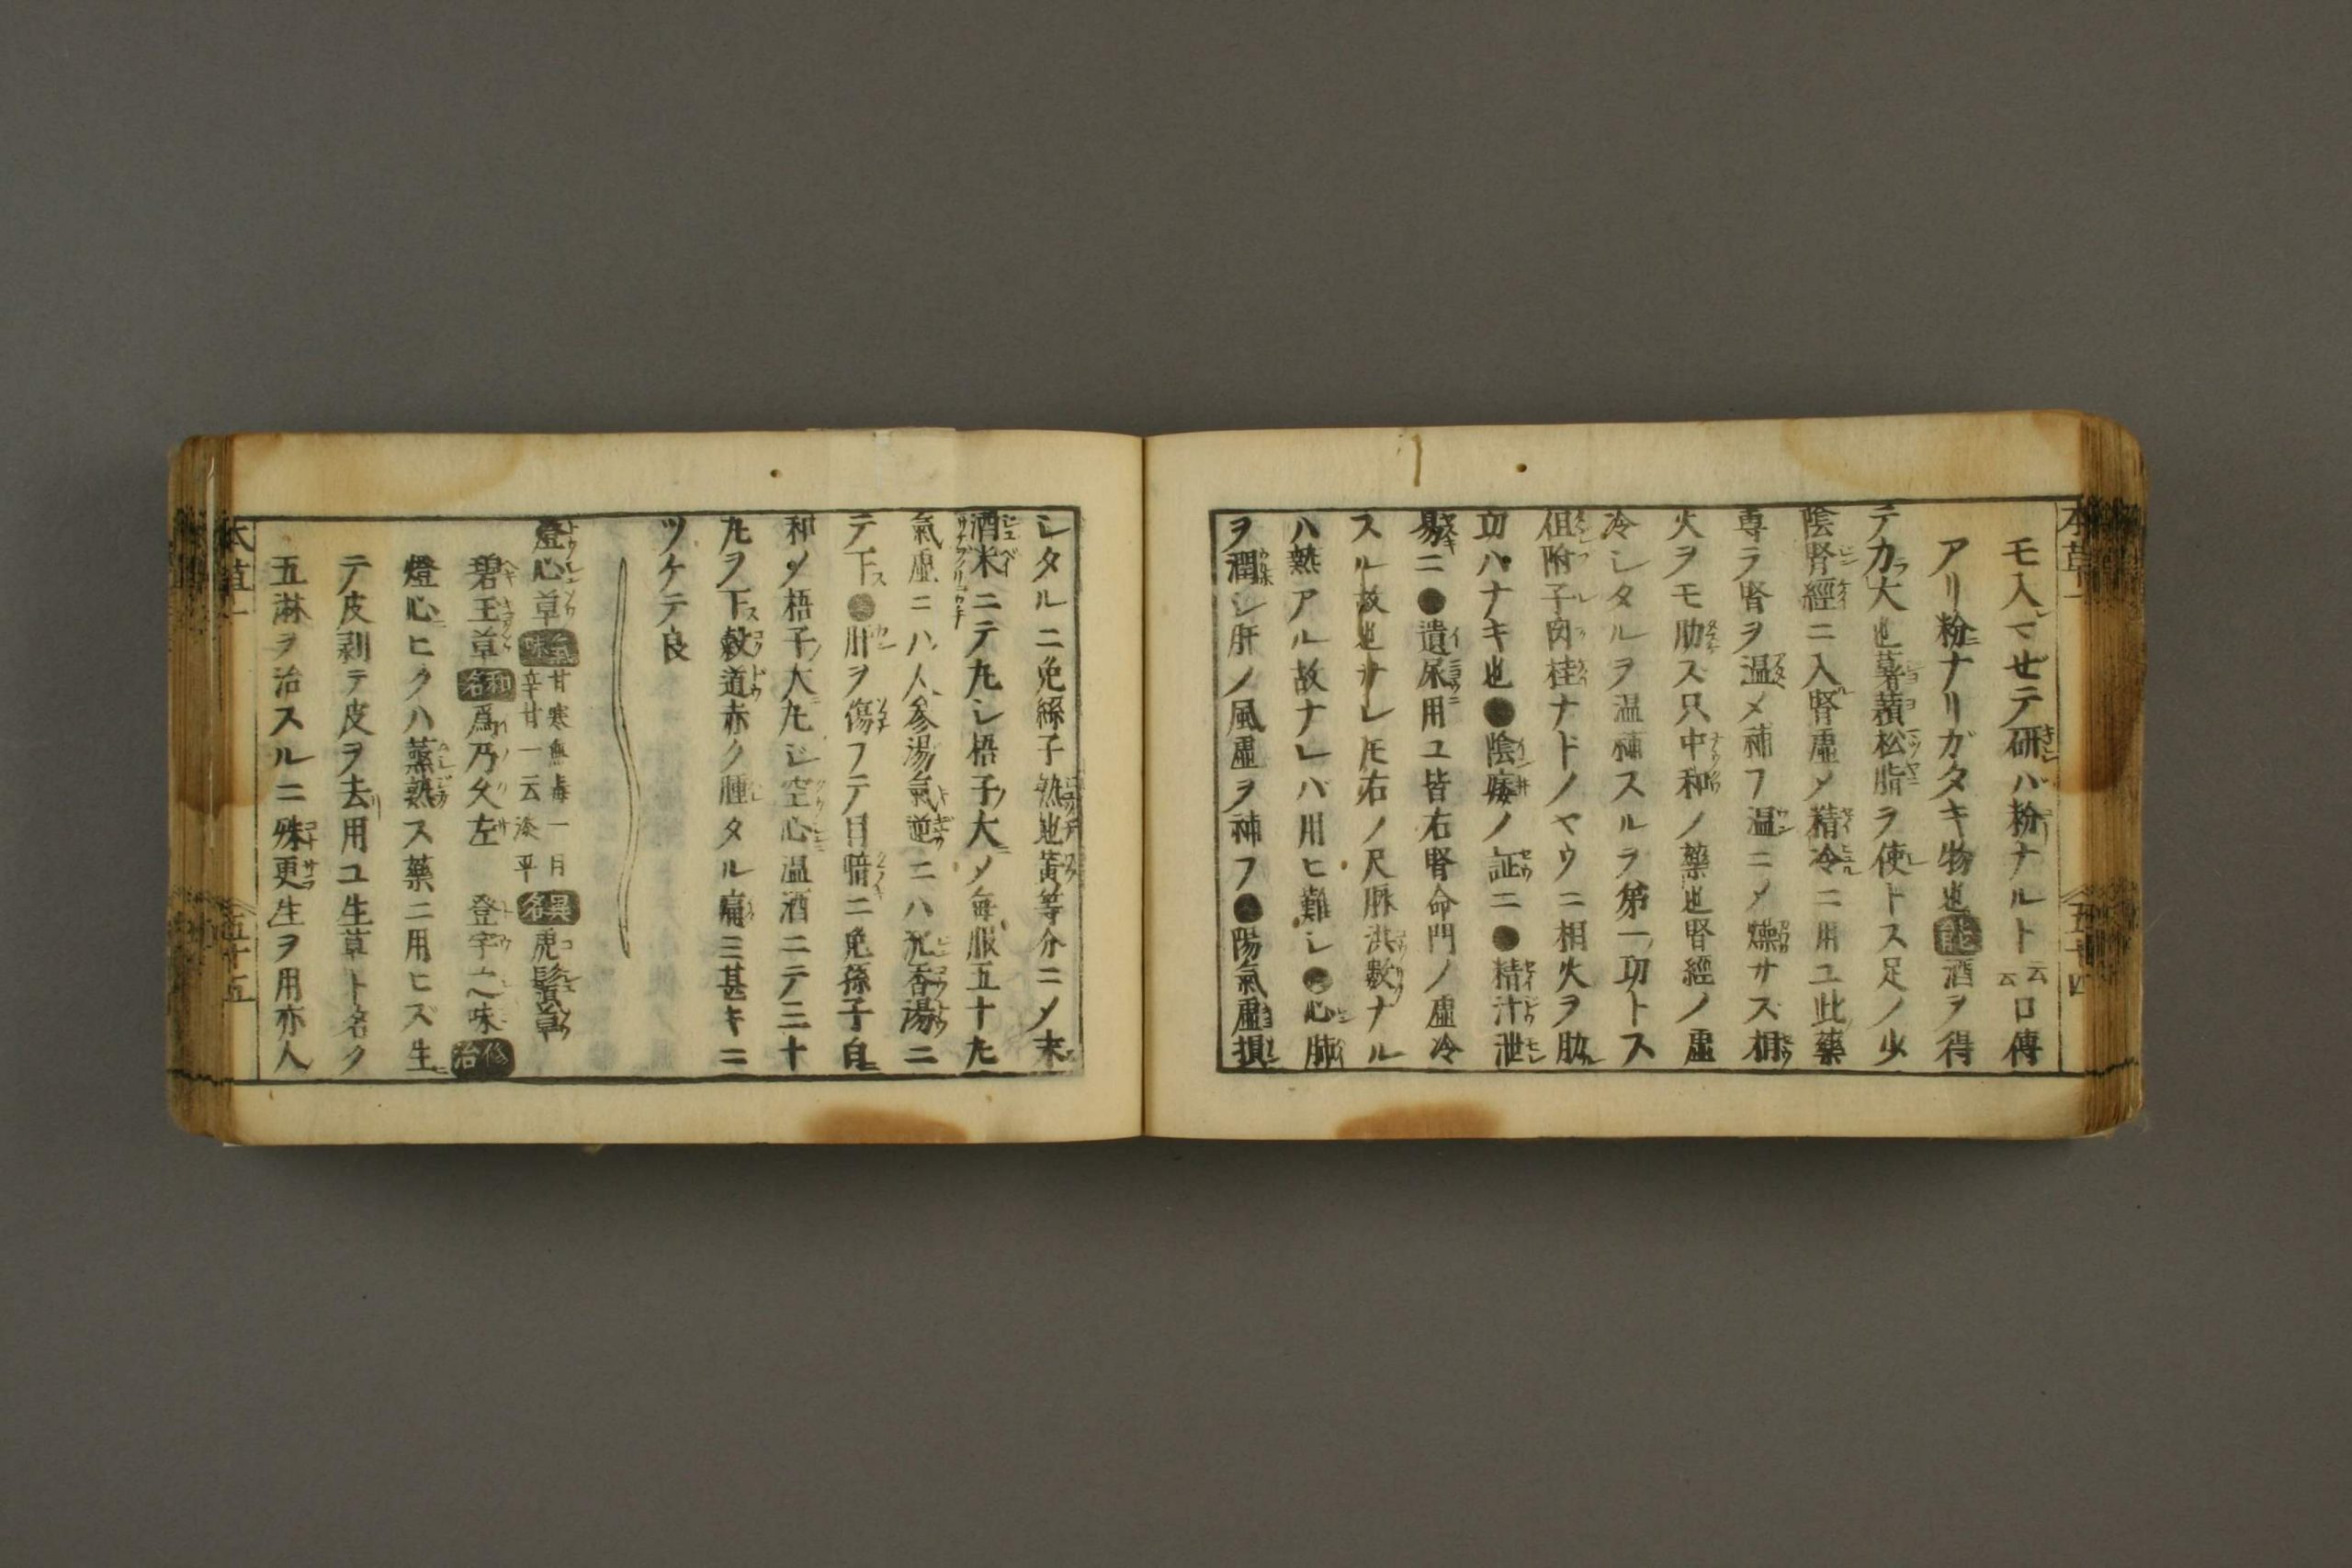 本草一
五十四
モ入マゼテ研ハ粉ナルト云云口傳
アリ粉ナリガタキ物也能酒ヲ得
テ力大也薯蕷松脂ヲ使トス足ノ少
陰腎經ニ入腎虚メ精冷ニ用ユ此藥
専ラ腎ヲ温メ補フ温ニメ燥サス相
火ヲモ助ス只中和ノ藥也腎經ノ虚
冷シタルヲ温補スルヲ第一功トス
但附子肉桂ナドノヤウニ相火ヲ助
功ハナキ也●陰痿ノ証ニ●精汁泄
易ニ●遺尿用ユ皆右腎命門ノ虚冷
スル故也サレ𪜈右ノ尺脉洪數ナル
ハ熱アル故ナレバ用ヒ難シ●心肺
ヲ潤シ肝ノ風虚ヲ補フ●陽氣虚損
シタルニ兎絲子熟地黃等分ニメ末
酒米ニテ丸シ梧子大メ毎服五十丸
氣虚ニハ人參湯氣逆ニハ沉香湯ニ
テ下●肝ヲ傷フテ目暗ニ兎孫子自
和メ梧子大丸ジ空心温酒ニテ三十
丸ヲ下穀道赤ク腫タル痛ニ甚キニ
ツケテ良
燈心草氣味甘寒無毒一曰辛甘一云淡平異名虎鬚草
碧玉草和名爲乃久左 登宇之味修治
燈心ヒクハ蒸熟ス藥ニ用ヒズ生
テ皮剥テ皮ヲ去用ユ生草ト名ク
五淋ヲ治スルニ殊更生ヲ用亦人
本草一
五十五